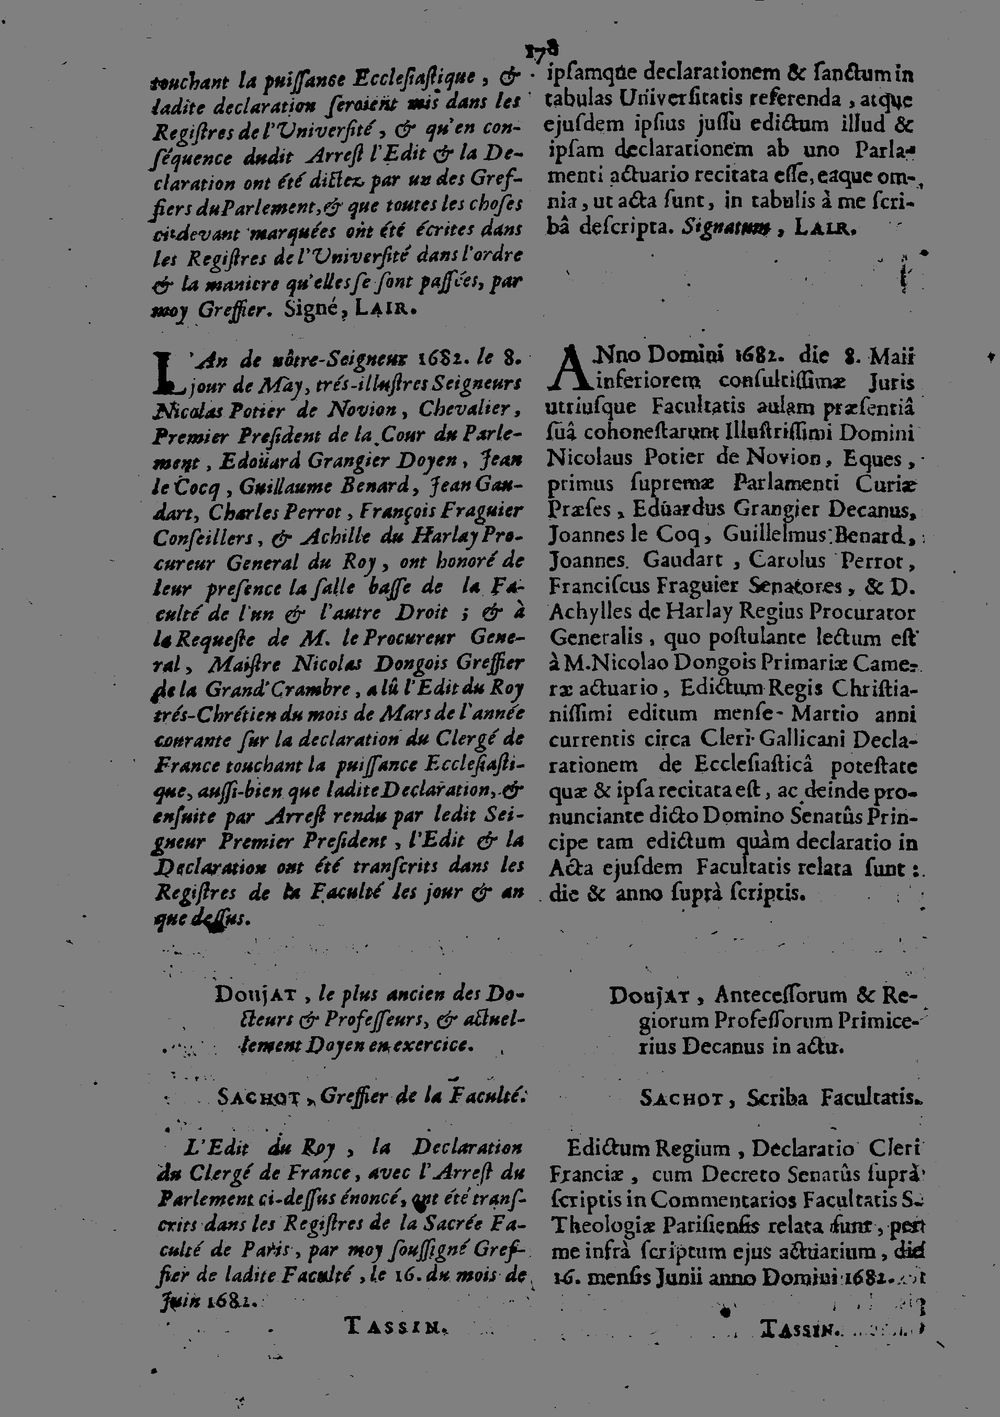 178
touchant la puissance Ecclesiastique, &
ladite declaration seroient mis dans les
Registres de l'Université, & qu'en con-
séquence dudit Arrest l'Edit & la De-
claration ont été dictez par un des Gref-
fiers du Parlement, & que toutes les choses
ci-devant marquées ont été écrites dans
les Registres de l'Université dans l'ordre
& la maniere qu'elles se sont passées, par
moy Greffier. Signé, LAIR.
L'An de nôtre-Seigneur 1682. le 8.
jour de May, trés-illustres Seigneurs
Nicolas Potier de Novion, Chevalier,
Premier President de la Cour du Parle-
ment, Edoüard Grangier Doyen, Jean
le Cocq, Guillaume Benard, Jean Gau-
dart, Charles Perrot, François Fraguier
Conseillers, & Achille du Harlay Pro-
cureur General du Roy, ont honoré de
leur presence la salle basse de la Fa-
culté de l'un & l'autre Droit ; & à
la Requeste de M. le Procureur Gene-
ral, Maistre Nicolas Dongois Greffier
de la Grand'Crambre, a lû l'Edit du Roy
trés-Chrétien du mois de Mars de l'année
courante sur la declaration du Clergé de
France touchant la puissance Ecclesiasti-
que, aussi-bien que ladite Declaration, &
ensuite par Arrest rendu par ledit Sei-
gneur Premier President, l'Edit & la
Declaration ont été transcrits dans les
Registres de la Faculté les jour & an
que dessus.
DoujAT, le plus ancien des Do-
cteurs & Professeurs, & actuel-
lement Doyen en exercice.
SACHOT, Greffier de la Faculté.
L'Edit du Roy, la Declaration
du Clergé de France, avec l'Arrest du
Parlement ci-dessus énoncé, ont été trans-
crits dans les Registres de la Sacrée Fa-
culté de Paris, par moy soussigné Gref-
fier de ladite Faculté, le 16. du mois de
Juin 1682.
TASSIN.
ipsamque declarationem & sanctum in
tabulas Universitatis referenda, atque
ejusdem ipsius jussu edictum illud &
ipsam declarationem ab uno Parla-
menti actuario recitata esse, eaque om-
nia, ut acta sunt, in tabulis à me scri-
bâ descripta. Signatum, LAIR.
ANno Domini 1682. die 8. Maii
inferiorem consultissimæ Juris
utriusque Facultatis aulam præsentiâ
suâ cohonestarunt Illustrissimi Domini
Nicolaus Potier de Novion, Eques,
primus supremæ Parlamenti Curiæ
Præses, Eduardus Grangier Decanus,
Joannes le Coq, Guillelmus Benard,
Joannes Gaudart, Carolus Perrot,
Franciscus Fraguier Senatores, & D.
Achylles de Harlay Regius Procurator
Generalis, quo postulante lectum est
à M. Nicolao Dongois Primariæ Came-
ræ actuario, Edictum Regis Christia-
nissimi editum mense Martio anni
currentis circa Cleri Gallicani Decla-
rationem de Ecclesiasticâ potestate
quæ & ipsa recitata est, ac deinde pro-
nunciante dicto Domino Senatûs Prin-
cipe tam edictum quàm declaratio in
Acta ejusdem Facultatis relata sunt :
die & anno suprà scriptis.
DoujAT, Antecessorum & Re-
giorum Professorum Primice-
rius Decanus in actu.
SACHOT, Scriba Facultatis.
Edictum Regium, Declaratio Cleri
Franciæ, cum Decreto Senatûs suprà
scriptis in Commentarios Facultatis S.
Theologiæ Parisiensis relata sunt, per
me infrà scriptum ejus actuarium, die
16. mensis Junii anno Domini 1682.
TASSIN.